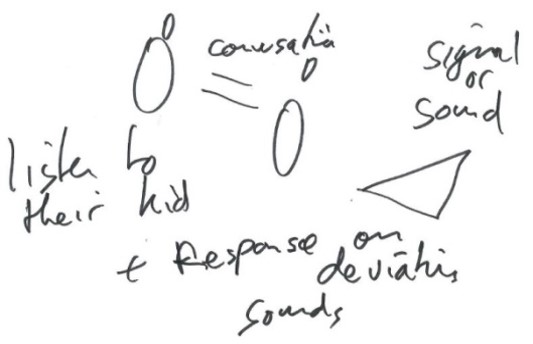 conversation
signal
or
sound
listen to
their kid
+ Response on
deviating
sounds